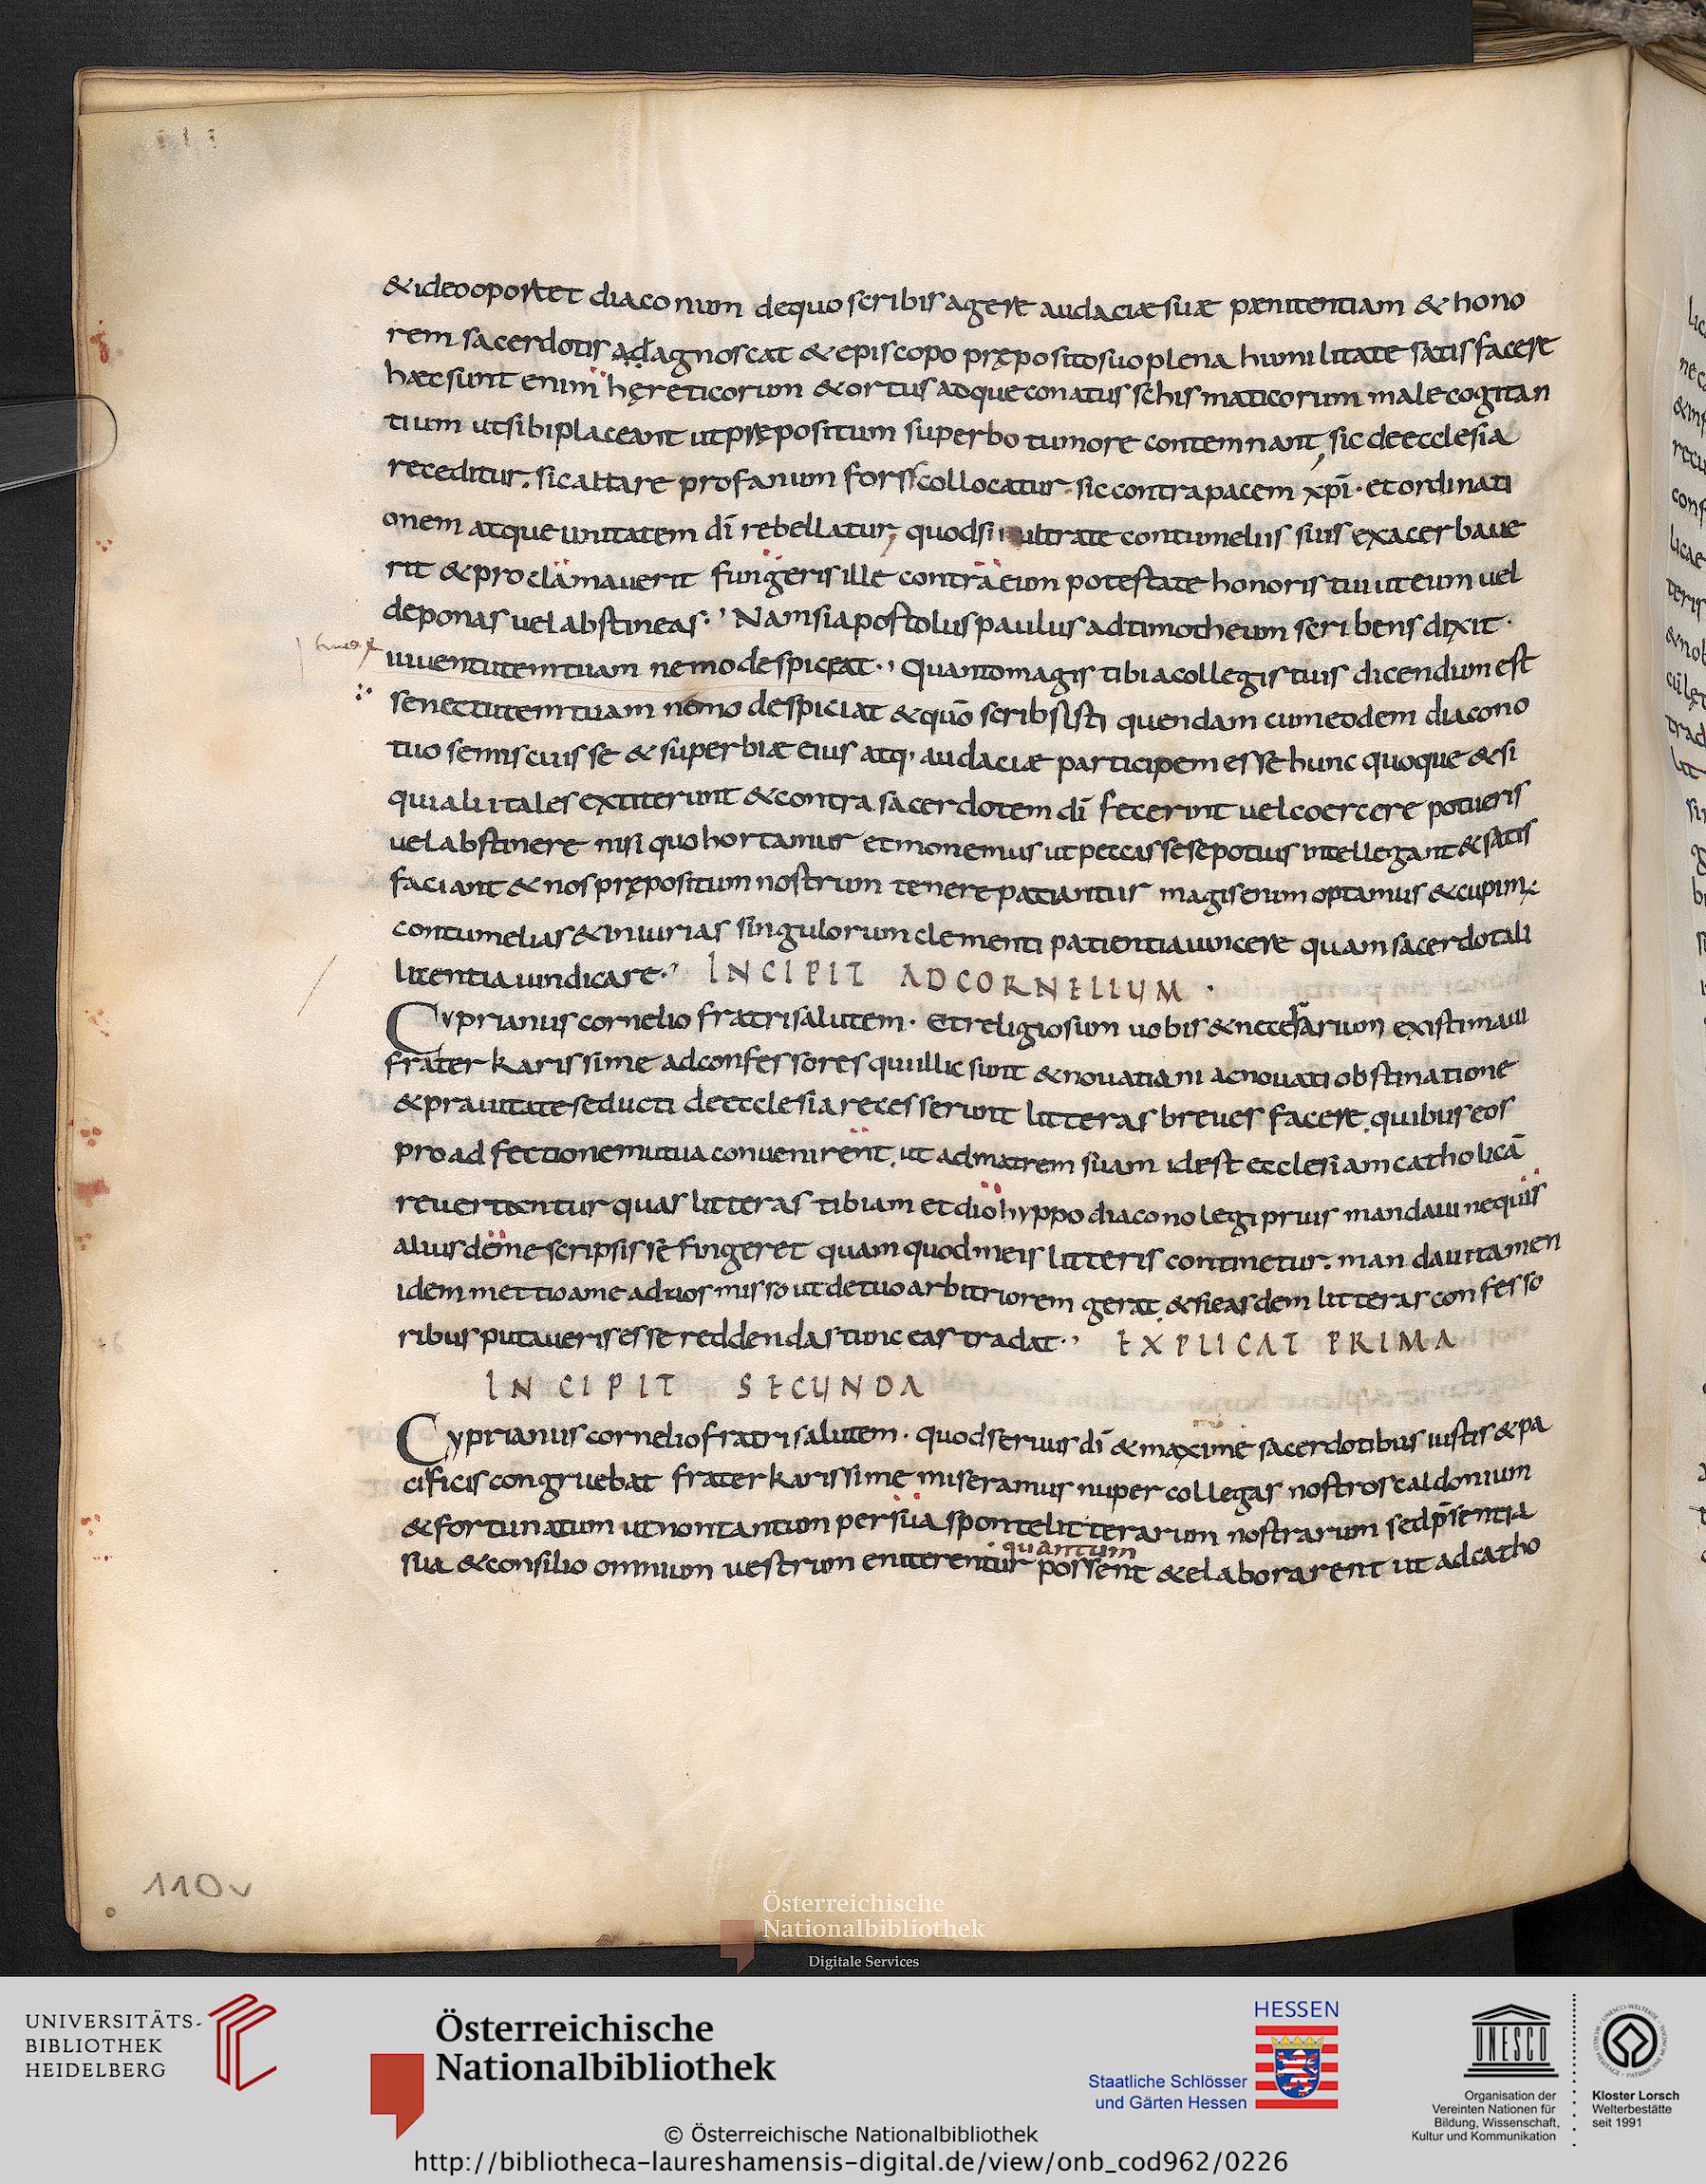 & ideo oportet diaconum de quo scribis agere audaciæ suæ pænitentiam & hono
rem sacerdotis adagnoscat & episcopo pręposito suo plena humilitate satisfacere
hæc sunt enim hęreticorum & ortus adque conatus schismaticorum male cogitan
tium ut sibi placeant ut prępositum superbo tumore contemnant, sic de ecclesia
receditur. sic altare profanum foris collocatur. sic contra pacem xp̄i. et ordinati
onem atque unitatem dī rebellatur; quod si ultrate contumeliis suis exacerbaue
rit & proclamauerit fungeris ille contra eum potestate honoris tui ut eum uel
deponas uel abstineas. Nam si apostolus paulus ad timotheum scribens dixit.
iuuentutem tuam nemo despiceat. Quanto magis tibi a collegis tuis dicendum est
senectutem tuam nemo despiciat & quō scribsisti quendam cum eodem diacono
tuo se miscuisse & superbiæ eius atq; audaciæ participem esse hunc quoque & si
qui alii tales extiterunt & contra sacerdotem dī fecerint uel coercere potueris
uel abstinere nisi quo hortamur et monemus ut peccasse se potius intellegant & satis
faciant & nos prępositum nostrum tenere patiantur magis enim optamus & cupim;
contumelias & iniurias singulorum clementi patientia uincere quam sacerdotali
licentia uindicare. INCIPIT AD CORNELIUM.
Cyprianus cornelio fratri salutem. et religiosum uobis & necessarium existimaui
frater karissime ad confessores qui illic sunt & nouatiani ac nouati obstinatione
& prauitate seducti de ecclesia recesserunt litteras breues facere. quibus eos
pro adfectione mutua conuenirent. ut ad matrem suam id est ecclesiam catholicā
reuertantur quas litteras tibi am et dio hyppo diacono legi prius mandaui ne quis
alius de me scripsisse fingeret quam quod meis litteris continetur. mandaui tamen
idem mettio a me ad uos misso ut de tuo arbitrio rem gerat. & si easdem litteras confesso
ribus putaueris esse reddendas tunc eas tradat. EXPLICAT PRIMA
INCIPIT SECUNDA
Cyprianus cornelio fratri salutem. quod seruis dī & maxime sacerdotibus iustis & pa
cificis congruebat frater karissime miseramus nuper collegas nostros caldonium
& fortunatum ut non tantum persua sponte litterarum nostrarum sed p̄sentia
quantum
sua & consilio omnium uestrum eniterentur possent & elaborarent ut ad catho
110v
Österreichische
Nationalbibliothek
Digitale Services
UNIVERSITÄTS-
BIBLIOTHEK
HEIDELBERG
Österreichische
Nationalbibliothek
HESSEN
Staatliche Schlösser
und Gärten Hessen
UNESCO
Organisation der
Vereinten Nationen für
Bildung, Wissenschaft,
Kultur und Kommunikation
Kloster Lorsch
Welterbestätte
seit 1991
© Österreichische Nationalbibliothek
http://bibliotheca-laureshamensis-digital.de/view/onb_cod962/0226